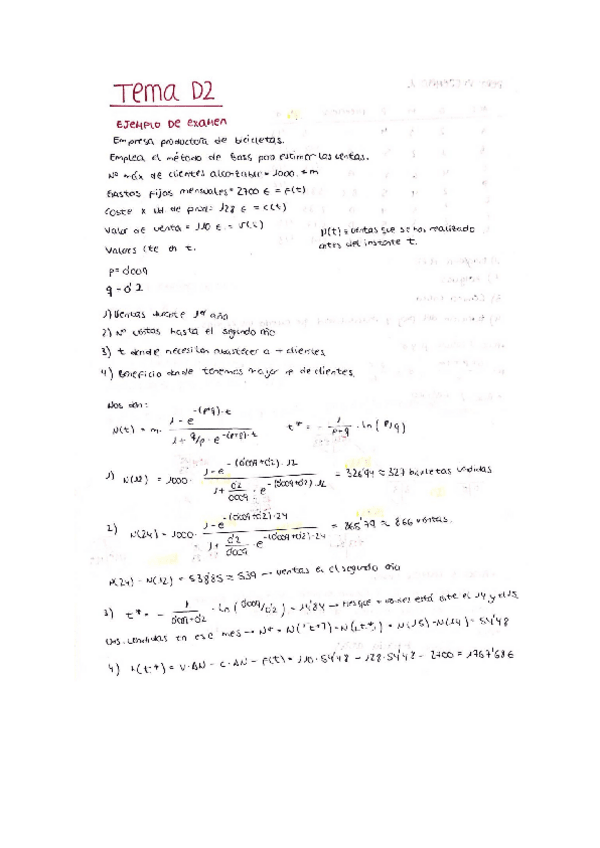 Tema D2
EJEMPLO DE EXAMEN
Empresa productora de bicicletas.
Emplea el método de Bass para estimar las ventas.
Nº máx de clientes alcanzables = 1000 = m
Gastos fijos mensuales = 2700 € = F(t)
Coste x ud de prod = 128 € = C(t)
Valor de venta = 110 € = V(t)
N(t) = ventas que se han realizado
antes del instante t.
Valores cte en t.
p = 0'009
q = 0'2
1) Ventas durante 1er año
2) Nº ventas hasta el segundo año
3) t donde necesitan abastecer a + clientes
4) Beneficio donde tenemos mayor nº de clientes.
Nos dan:
N(t) = m · 1-e^-(p+q)·t / 1+ q/p · e^-(p+q)·t    t* = - 1/p+q · ln (p/q)
1) N(12) = 1000 · 1-e^-(0'009+0'2)·12 / 1+ 0'2/0'009 · e^-(0'009+0'2)·12 = 326'94 ≈ 327 bicicletas vendidas
2) N(24) = 1000 · 1-e^-(0'009+0'2)·24 / 1+ 0'2/0'009 · e^-(0'009+0'2)·24 = 865'79 ≈ 866 ventas.
N(24) - N(12) = 538'85 ≈ 539 → ventas en el segundo año
3) t* = - 1/0'009+0'2 · ln (0'009/0'2) = 14'84 → mes que + vemos está entre el 14 y el 15
Uds. vendidas en ese mes → N* = N(t*+1) - N(t*) = N(15) - N(14) = 54'48
4) (t*) = V·ΔN - C·ΔN - F(t) = 110·54'48 - 128·54'48 - 2700 = 1767'68 €